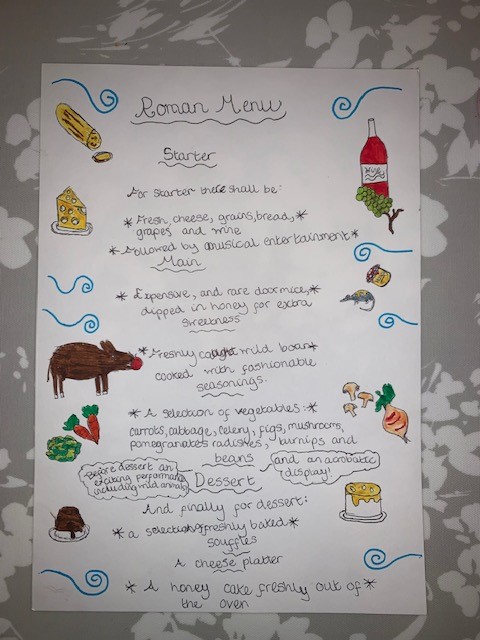 Roman Menu
Starter
For starter there shall be:
* Fresh cheese, grains, bread, *
grapes and wine
Wine
* Followed by musical entertainment *
Main
* Expensive, and rare doormice, *
dipped in honey for extra
sweetness
* Freshly caught wild boar *
cooked with fashionable
seasonings.
* A selection of vegetables: *
carrots, cabbage, celery, figs, mushrooms,
pomegranates radishes, turnips and
beans
Before dessert an
exciting performance
including wild animals
and an acrobatic
display!
Dessert
And finally for dessert:
* a selection of freshly baked *
souffles
A cheese platter
* A honey cake freshly out of *
the oven